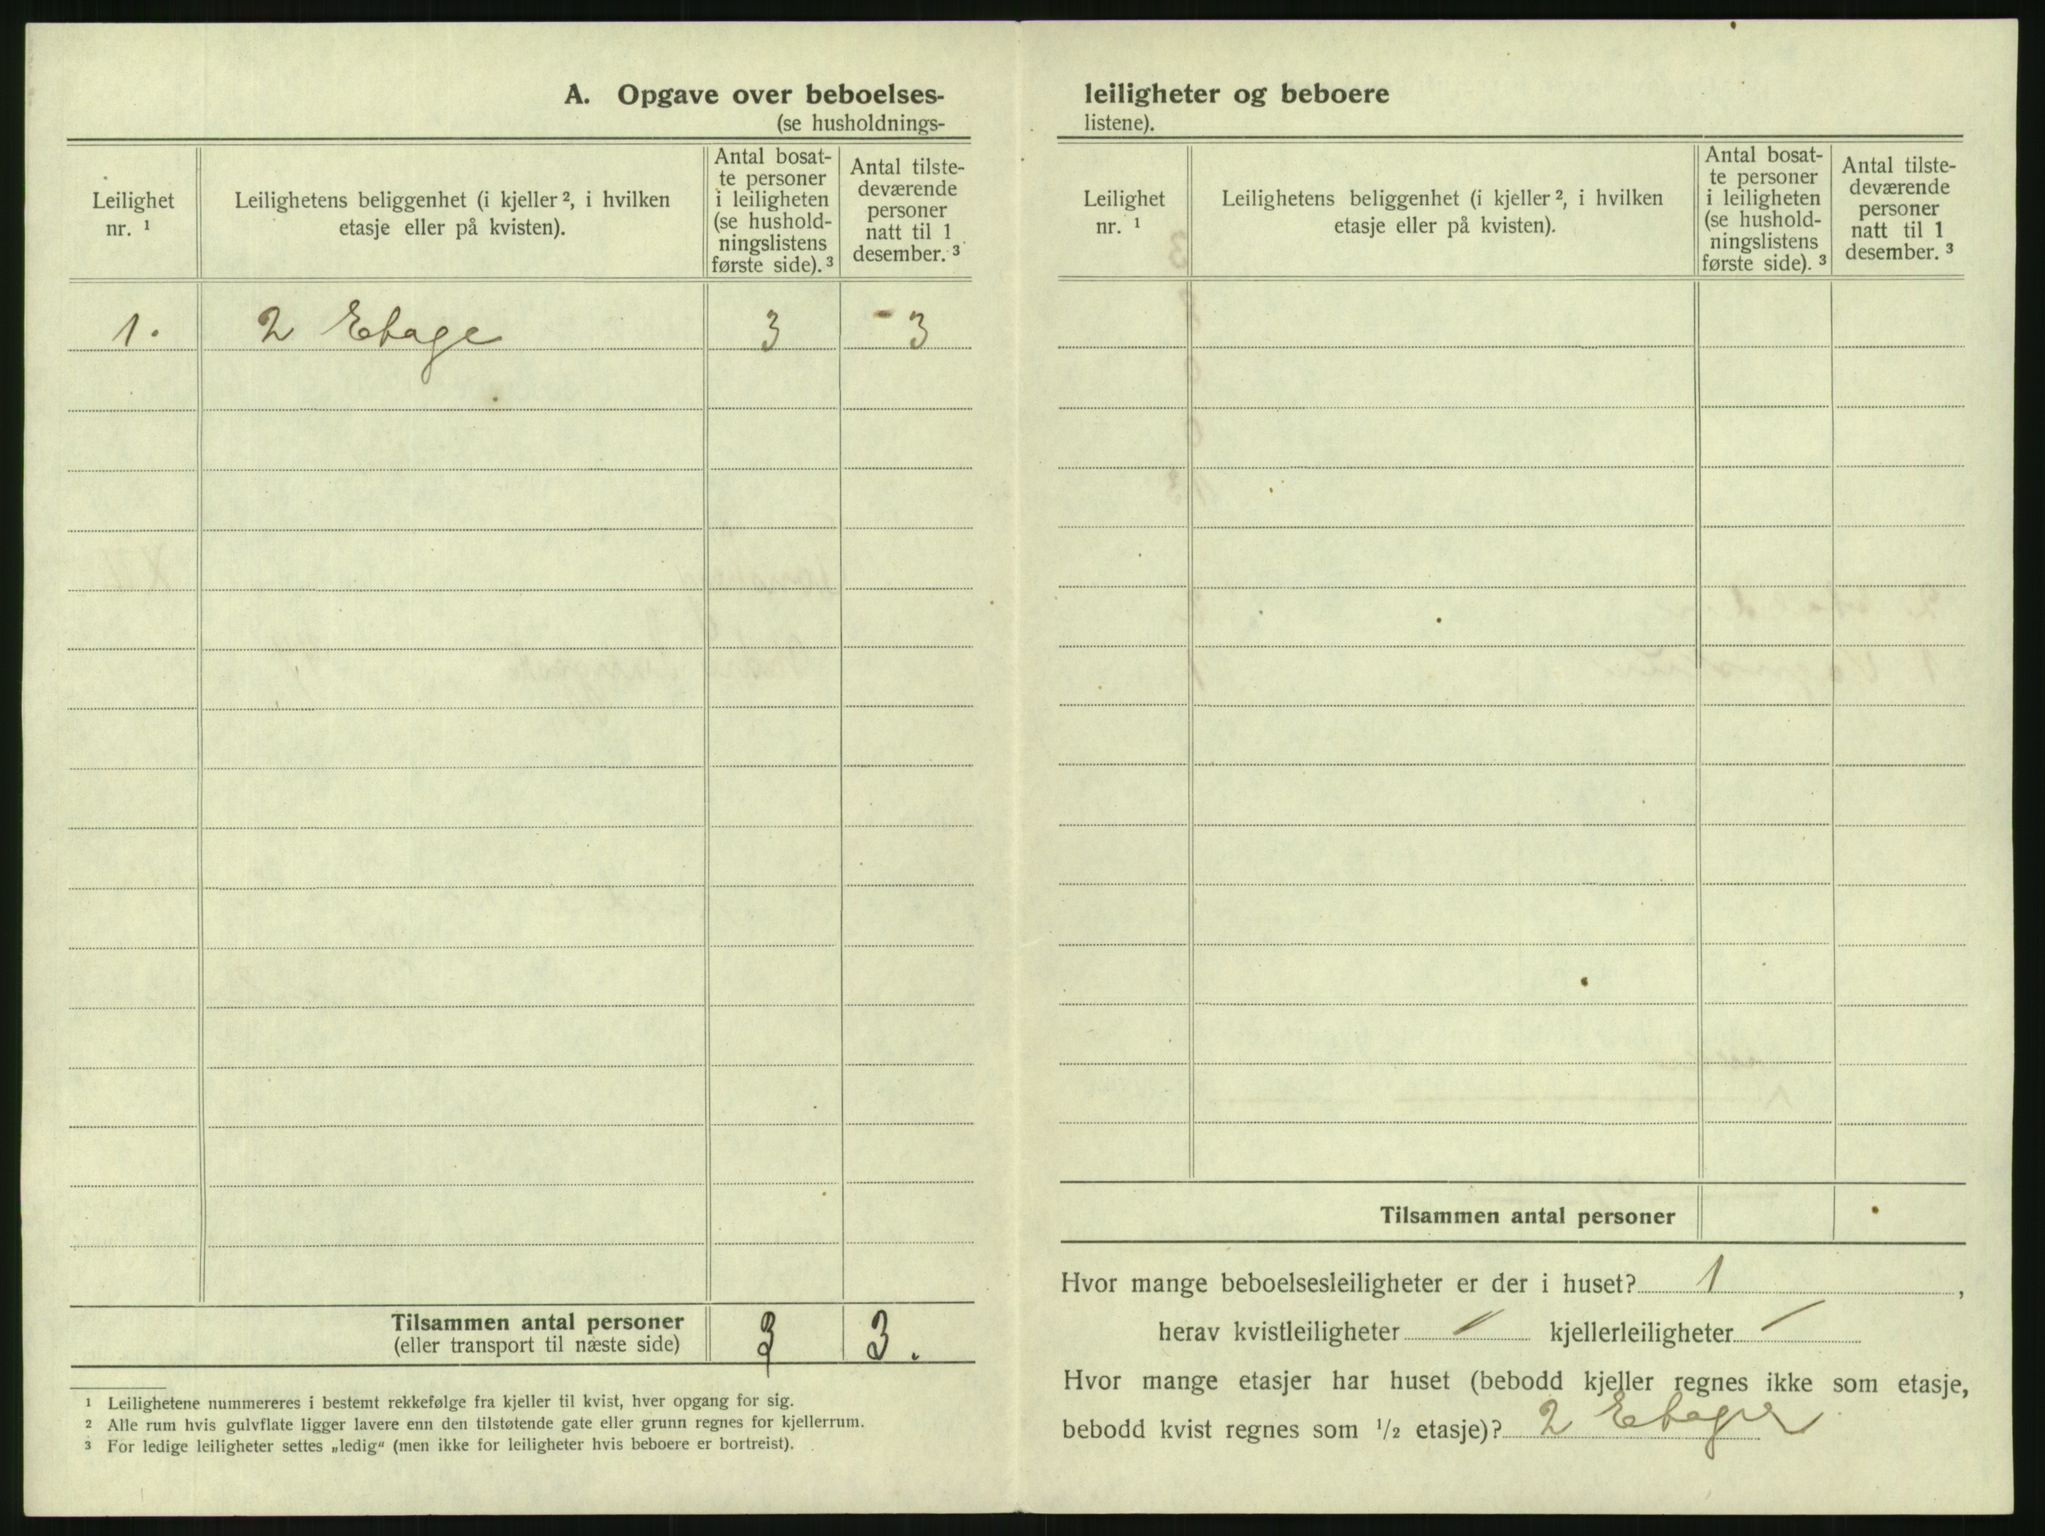 A. Opgave over beboelses-
(se husholdnings-
Leilighet
nr. ¹
Leilighetens beliggenhet (i kjeller ², i hvilken
etasje eller på kvisten).
Antal bosat-
te personer
i leiligheten
(se hushold-
ningslistens
første side). ³
Antal tilste-
deværende
personer
natt til 1
desember. ³
1. 2 Etage 3 3
Tilsammen antal personer 3 3.
(eller transport til næste side)
¹ Leilighetene nummereres i bestemt rekkefølge fra kjeller til kvist, hver opgang for sig.
² Alle rum hvis gulvflate ligger lavere enn den tilstøtende gate eller grunn regnes for kjellerrum.
³ For ledige leiligheter settes „ledig“ (men ikke for leiligheter hvis beboere er bortreist).
leiligheter og beboere
listene).
Leilighet
nr. ¹
Leilighetens beliggenhet (i kjeller ², i hvilken
etasje eller på kvisten).
Antal bosat-
te personer
i leiligheten
(se hushold-
ningslistens
første side). ³
Antal tilste-
deværende
personer
natt til 1
desember. ³
Tilsammen antal personer
Hvor mange beboelsesleiligheter er der i huset? 1,
herav kvistleiligheter / kjellerleiligheter /
Hvor mange etasjer har huset (bebodd kjeller regnes ikke som etasje,
bebodd kvist regnes som ¹/₂ etasje)? 2 Etager